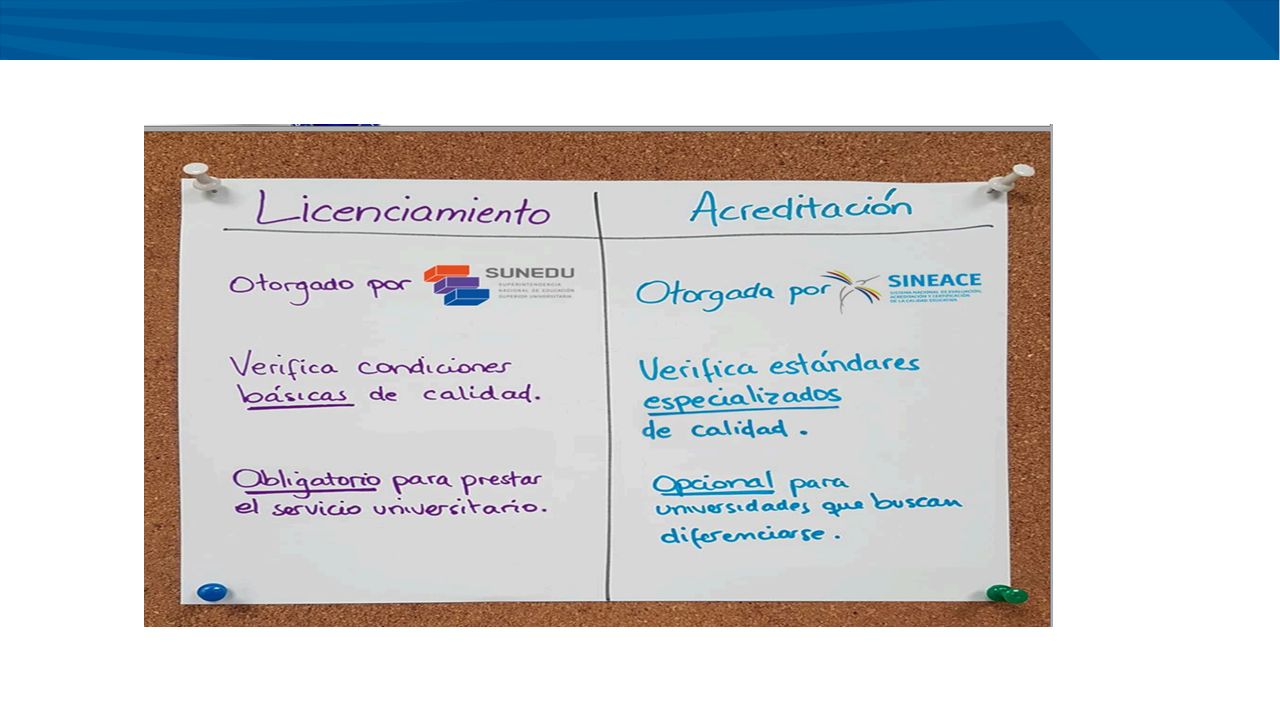 Licenciamiento
Otorgado por
SUNEDU
SUPERINTENDENCIA
NACIONAL DE EDUCACIÓN
SUPERIOR UNIVERSITARIA
Verifica condiciones
básicas de calidad.
Obligatorio para prestar
el servicio universitario.
Acreditación
Otorgada por
SINEACE
SISTEMA NACIONAL DE EVALUACIÓN,
ACREDITACIÓN Y CERTIFICACIÓN
DE LA CALIDAD EDUCATIVA
Verifica estándares
especializados
de calidad.
Opcional para
universidades que buscan
diferenciarse.